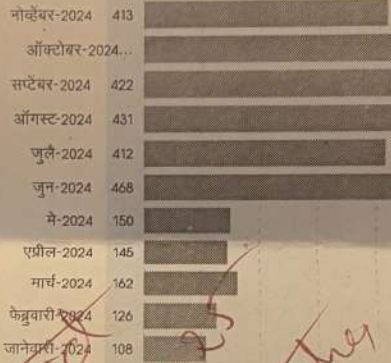 नोव्हेंबर-2024 413
ऑक्टोबर-2024...
सप्टेंबर-2024 422
ऑगस्ट-2024 431
जुलै-2024 412
जुन-2024 468
मे-2024 150
एप्रील-2024 145
मार्च-2024 162
फेब्रुवारी-2024 126
जानेवारी-2024 108